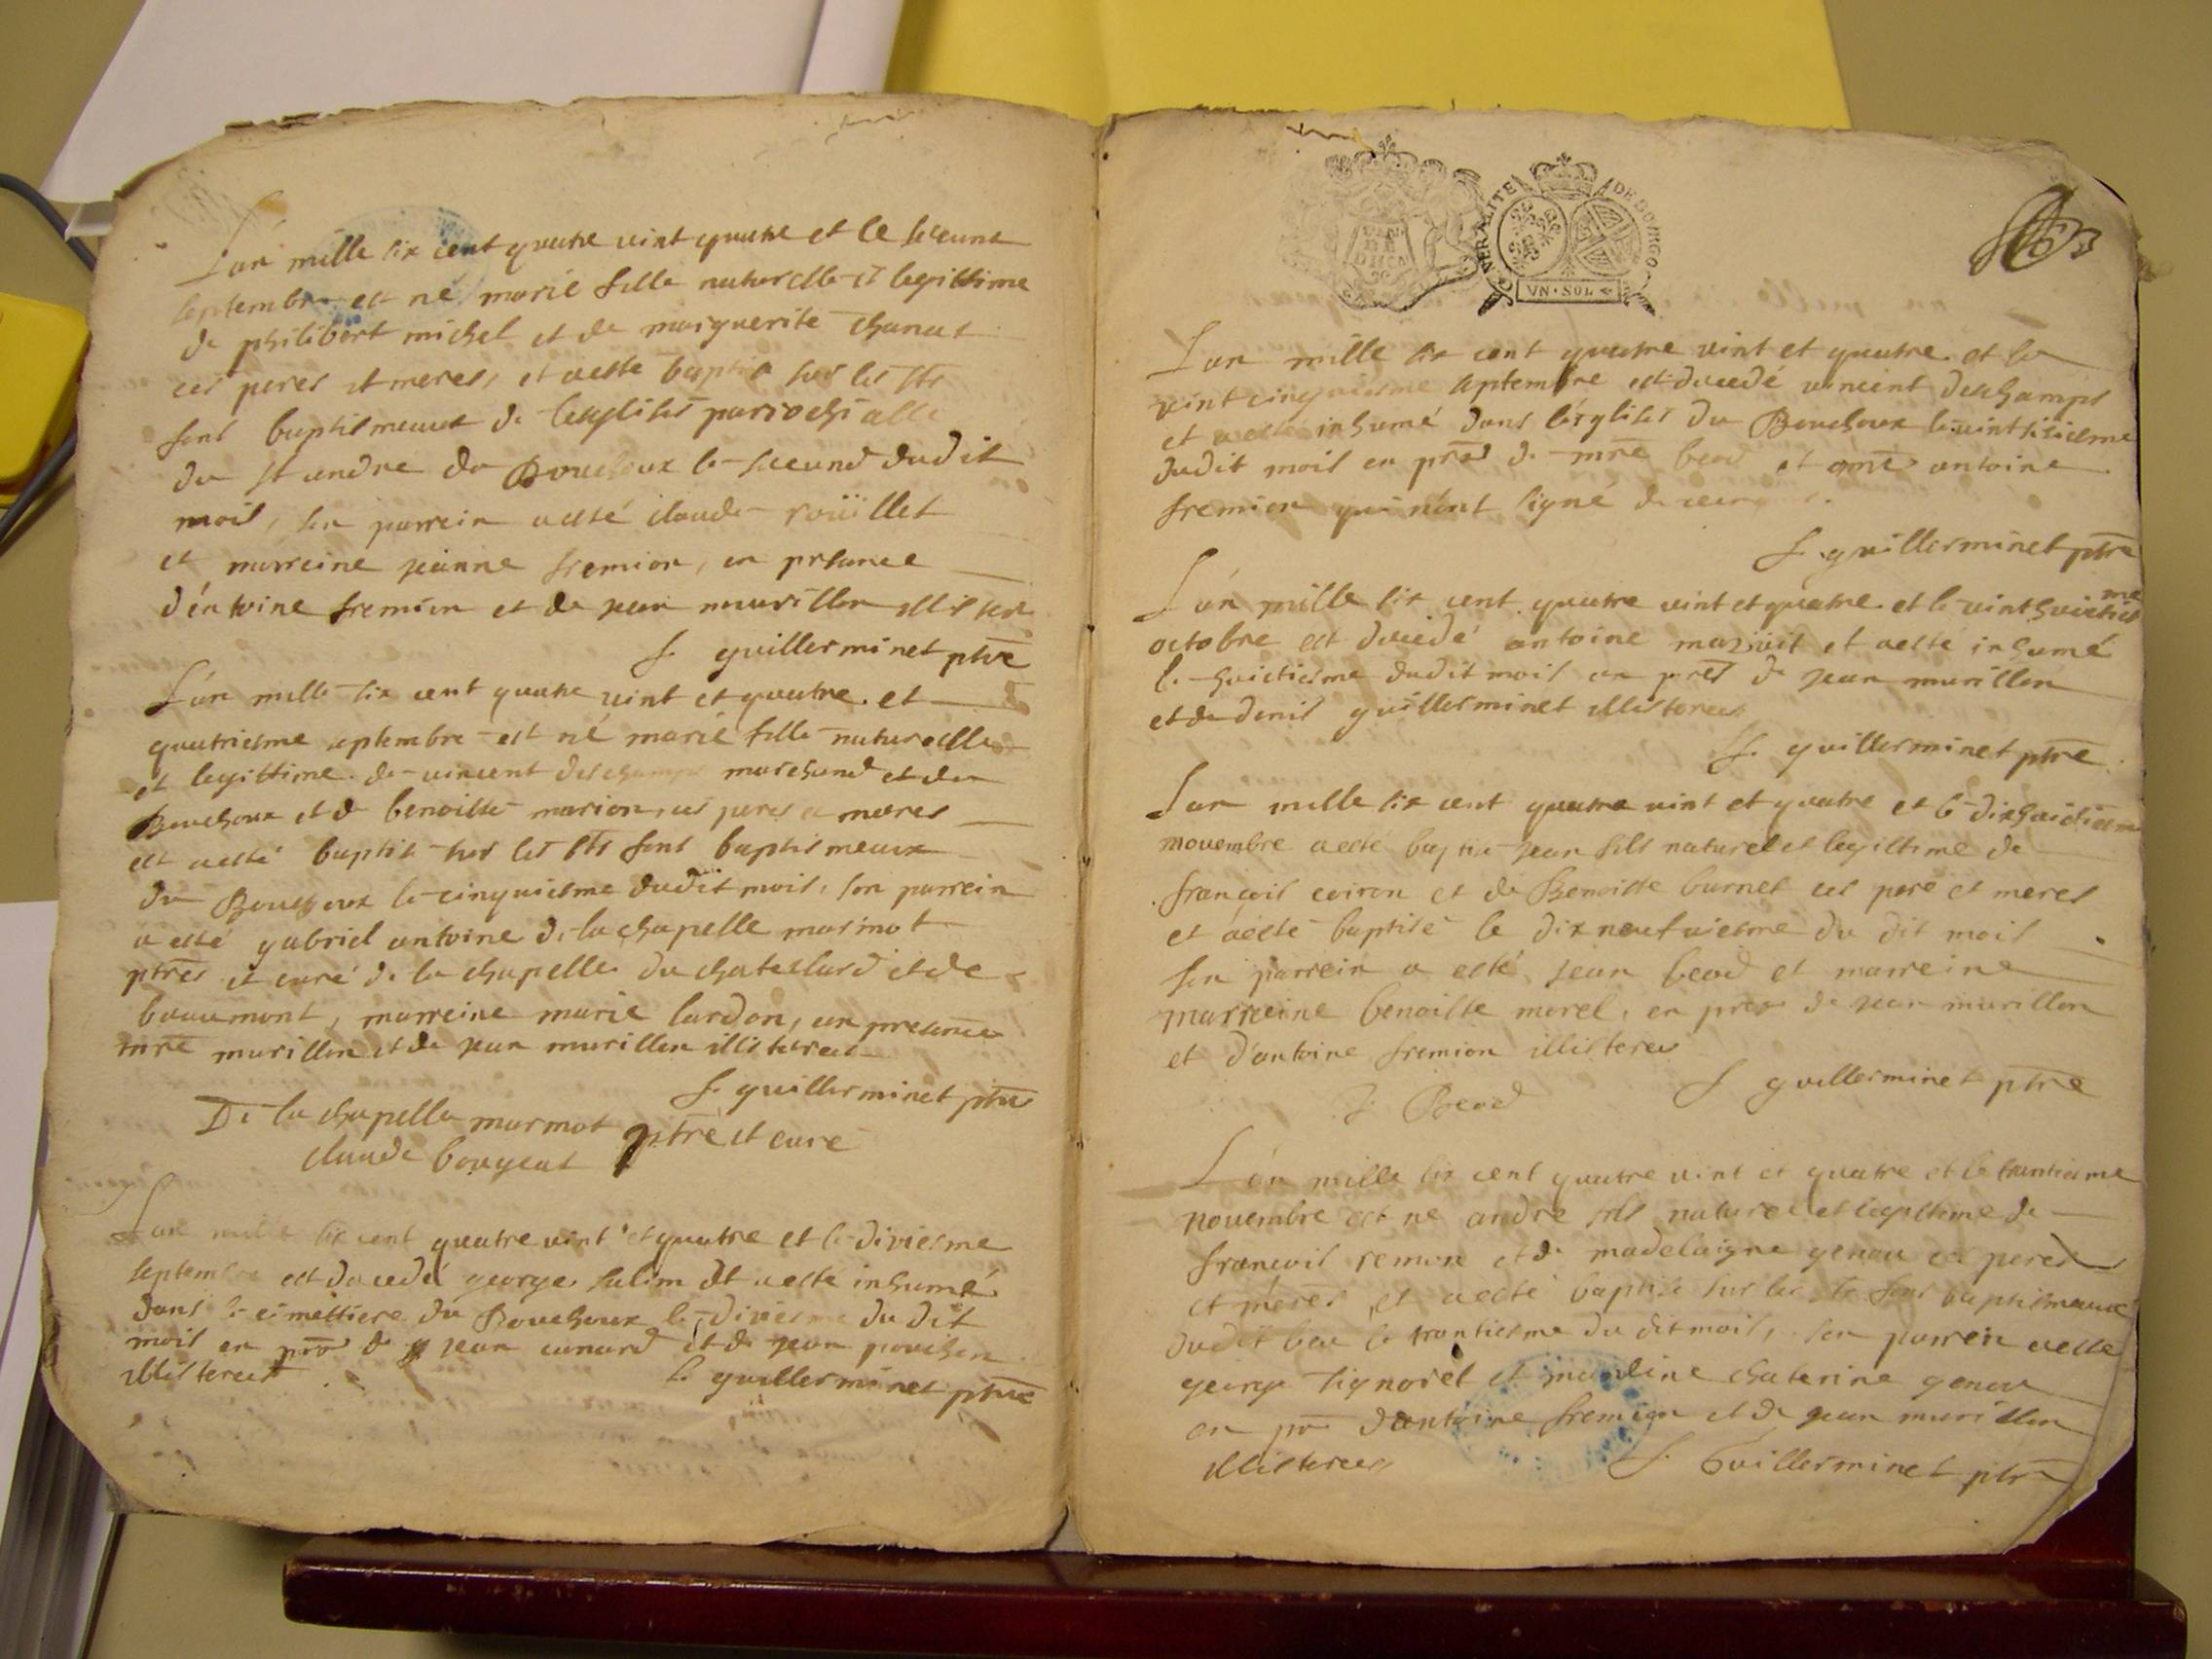 L'an mille six cent quatre vint quatre et le secunt
septembre est né marie fille naturelle et legittime
de philibert michel et de marguerite chanut
ces peres et meres, et aeste baptisa sur les sts
fons baptismaux de lesglises parrochialle
du st andre du Bouchoux le secund dudit
mois, son parrein aesté claude rouillet
et marreine jeanne fremion, en presance
d'antoine fremion et de jean murillon
f. guillerminet ptre
L'an mille six cent quatre vint et quatre et
quatriesme septembre est né marie fille naturelle
et legittime de vincent deschamps marchand et du
Bouchoux et de benoitte marion, ces peres et meres
est aesté baptise sur les sts fons baptismeaux
du Bouchoux le cinquiesme dudit mois, son parrein
a esté gabriel antoine de la chapelle marmot
ptres et curé de la chapelle du chatelard et de
beaumont, marreine marie lardon, en presance
mre murillon et de jean murillon illisteres
f. guillerminet ptre
De la chapelle marmot ptre et curé
claude bougeat
L'an mille six cent quatre vint et quatre et le diviesme
septembre est decedé george salim et aesté inhumé
dans le cimettiere du Bouchoux le diviesme du dit
mois en pre de jean canard et de jean
illisteres
f. guillerminet ptre
GENERALITE DE BOURGO
VN·SOL
L'an mille six cent quatre vint et quatre et le
vintcinquiesme septembre est decedé vincent deschamps
et aesté inhumé dans l'esglises du Bouchoux le vintsisiesme
dudit mois en pres de mre beod et antoine
fremion qui n'ont signé
f. guillerminet ptre
L'an mille six cent quatre vint et quatre et le vinthuictiesme
octobre est decedé antoine et aesté inhumé
le huictiesme dudit mois en pres de jean murillon
et de denis guillerminet illisteres
f. guillerminet ptre
L'an mille six cent quatre vint et quatre et le dixhuictiesme
novembre aesté baptise jean fils naturel et legittime de
françois coiron et de Benoitte burnet ces pere et meres
et aesté baptisé le dixneufviesme du dit mois
son parrein a esté jean beod et marreine
marreine benoiste morel, en pres de jean murillon
et d'antoine fremion illisteres
J. Beod f guillerminet ptre
L'an mille six cent quatre vint et quatre et le trantiesme
novembre est ne andre fils naturel et legittime de
françois remon et de madelaigne genou ces peres
et meres et aesté baptise sur les sts fons baptismaux
dudit beu le trantiesme du dit mois, son parrein aesté
george tignorel et chaterine genou
en pre d'antoine fremion et de jean murillon
illisteres f. Guillerminet ptre